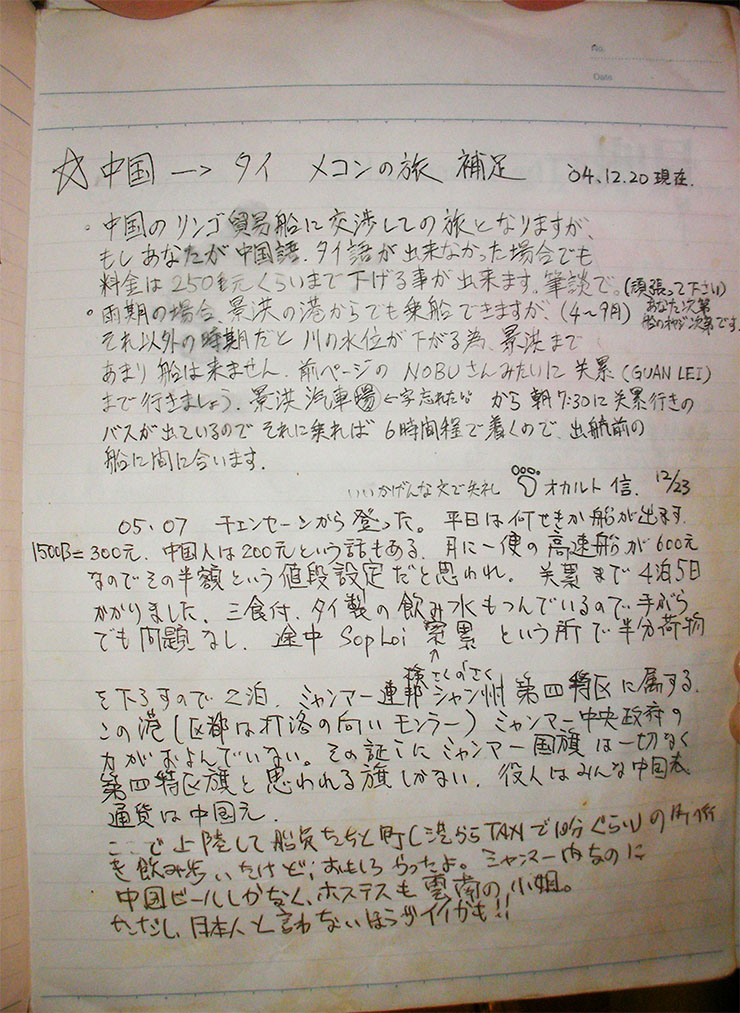 No.
Date
☆中国 → タイ メコンの旅 補足 '04.12.20 現在.
・中国のリンゴ貿易船に交渉しての旅となりますが、
もしあなたが中国語.タイ語が出来なかった場合でも
料金は250元くらいまで下げる事が出来ます.筆談で。(頑張って下さい)
あなた次第
船の 次第です。
・雨期の場合、景洪の港からでも乗船できますが、(4〜9月)
それ以外の時期だと川の水位が下がる為、景洪まで
あまり船は来ません. 前ページのNOBUさんみたいに关累(GUAN LEI)
まで行きましょう. 景洪汽車場 ←字忘れた から 朝7:30に关累行きの
バスが出ているのでそれに乗れば 6時間程で着くので、出航前の
船に間に合います.
いいかげんな文で失礼 オカルト信. 12/23
05.07 チェンセーンから登った。平日は何せきか船が出ます.
1500B=300元. 中国人は200元という話もある. 月に一便の高速船が600元
なのでその半額という値段設定だと思われ。 关累まで4泊5日
かかりました. 三食付. タイ製の飲み水もつんでいるので手ぶら
でも問題なし. 途中 Sop Loi 累 という所で半分荷物
↑
を下ろすので2泊. ミャンマー連邦シャン州第四特区に属する.
この港(区都は打洛の向いモンラー)ミャンマー中央政府の
力がおよんでいない。その証しにミャンマー国旗は一切なく
第四特区旗と思われる旗しかない. 役人はみんな中国系
通貨は中国元.
ここで上陸して船員たちと町(港からTAXIで10分ぐらい)の
を飲み歩いたけど、おもしろかったよ。ミャンマー内なのに
中国ビールしかなく、ホステスも雲南の小姐。
ただし、日本人と言わないほうがイイかも!!